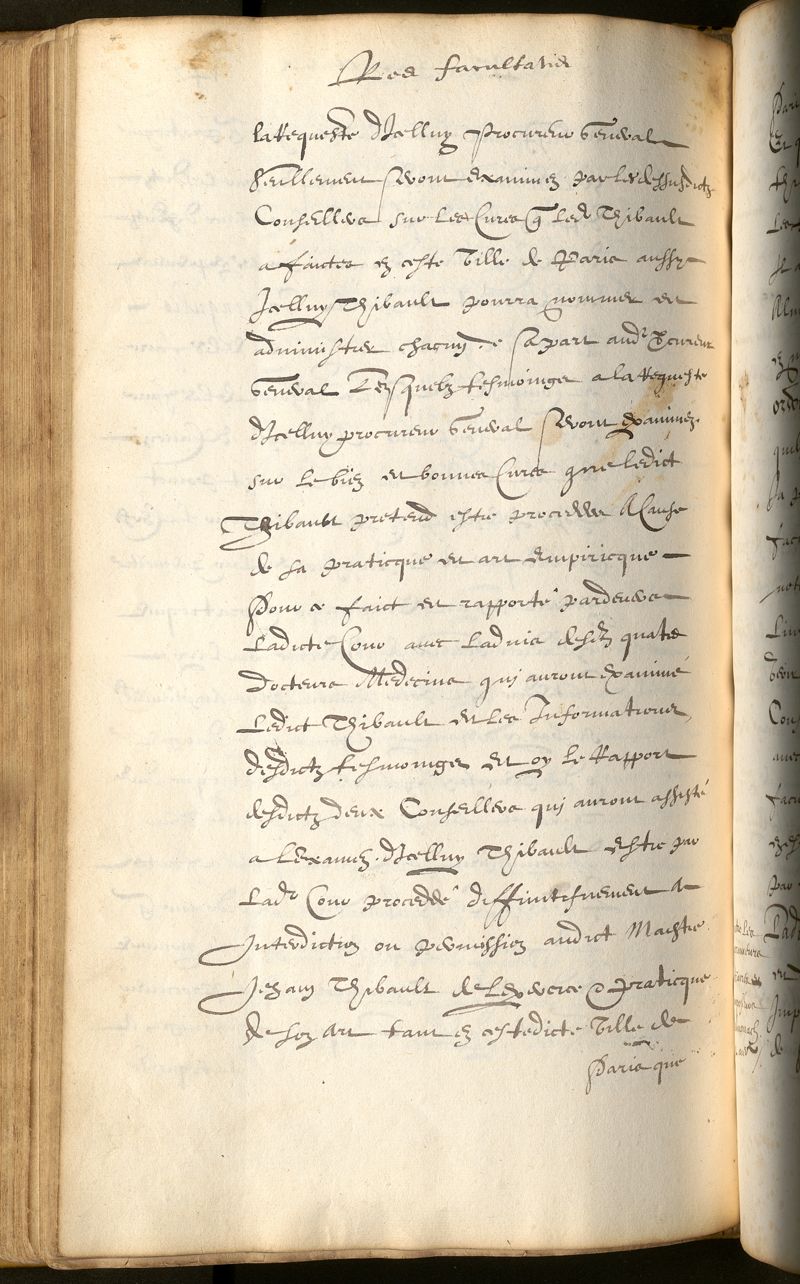 Res facultatis
la Requeste d'Icelluy Procureur General
Seullement seront examinez par lesdessusdictz
Conseillers sur les Cures q led Thibault
a faictes en ceste Ville de Paris aussy
Icelluy Thibault pourra nommer et
administrer chacun de sa part aud procureur
General Lesquelz tesmoings a la Requeste
d'Icelluy procureur General seront examinez
sur le bien et bonnes Cures que ledict
Thibault pretend estre procedees A Cause
de sa praticque et art Empiricque
Pour ce faict et rapporté pardevers
Ladicte Cour avec Ladvis desd quatre
Docteurs Medecins qui auront examiné
Ledict Thibault et Les Informations
desdictz tesmoings et oy le Rapport
desdictz deux Conseillers qui auront assisté
a Lexamen d'Icelluy Thibault estre par
Lad Cour proceddé diffinitifvement A
Interdiction ou permission audict Maistre
Jehan Thibault de Lexercice & praticque
de son art tant en cestedicte Ville de
Paris que